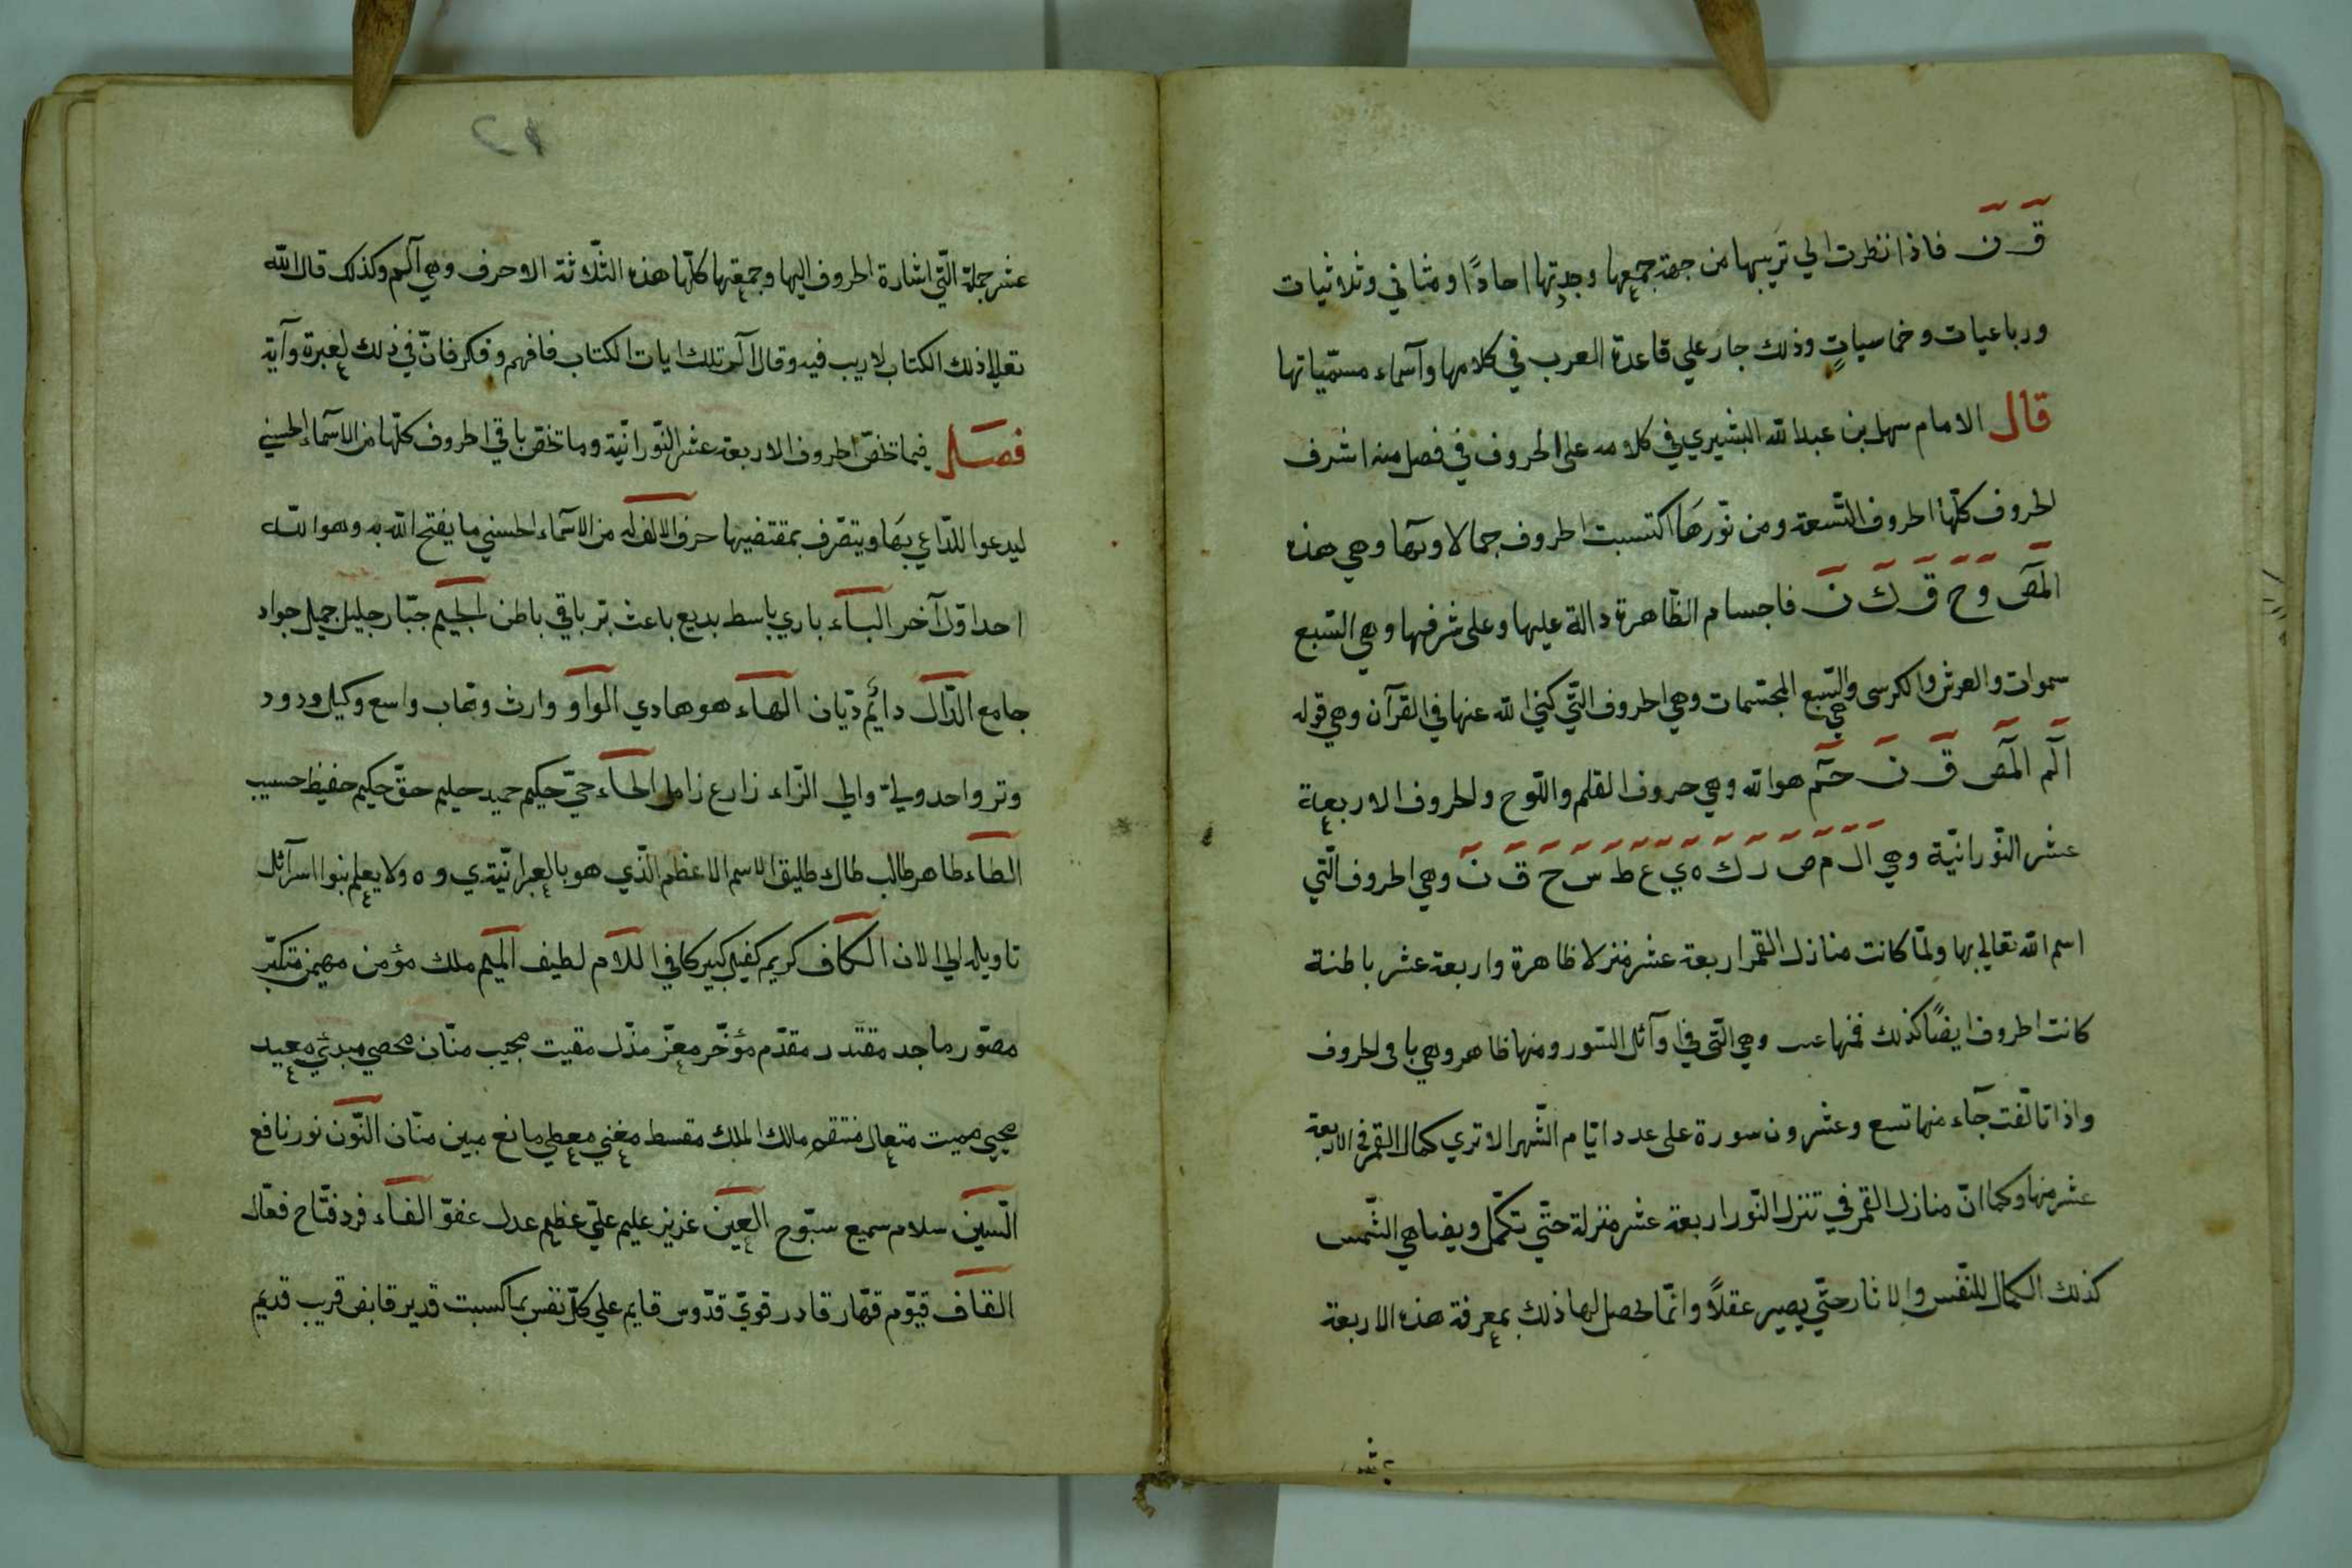 قٓ نٓ فاذا نظرت الي ترتيبها من جهة جمعها وجدتها احادًا ومثاني وثلاثيات
ورباعيات وخماسياتٍ وذلك جار علي قاعدة العرب في كلامها وآسماء مسمّياتها
قال الامام سهل بن عبد الله البشيري في كلامه على الحروف في فصل منه اشرف
الحروف كلّها الحروف التّسعة ومن نّورها اكتسبت الحروف جمالا وبهآ وهي هذه
المٓصٓ وٓ حٓ قٓ كٓ نٓ فاجسام الظّاهرة دالة عليها وعلى شرفها وهي السّبع
سموات والعرش والكرسى والسّبع المجسّمات وهي الحروف التّي كنّي الله عنها في القرآن وهي قوله
الٓم المٓصٓ قٓ نٓ حٓمٓ هو الله وهي حروف القلم واللّوح والحروف الاربعة
عشر النّورانيّة وهي ال م ص ر ك ه ي ع ط س ح ق ن وهي الحروف الّتي
اسم الله تعالي بها ولمّا كانت منازل القمر اربعة عشر منزلا ظاهرة واربعة عشر باطنة
كانت الحروف ايضًا كذلك فمنها وهي الّتي في اوآئل السّور ومنها ظاهر وهي باقي الحروف
واذا تالّفت جآء منها تسع وعشرون سورة على عدد ايّام الشّهر الا تري كمال القمر في الاربعة
عشر منها وكما انّ منازل القمر في تنزل النّور اربعة عشر منزلة حتّي تكمّل ويضاهي الشّمس
كذلك الكمال للنّفس والاثار حتّي يصير عقلاً وانّما يحصل لها ذلك بمعرفة هذه الاربعة
عشر
عشر جملة الّتي اشارة الحروف اليها وجمعتها كلّها هذه الثّلاثة الاحرف وهي آلم وكذلك قال اللّه
تعلي الم ذلك الكتاب لا ريب فيه وقال الٓر تلك ايات الكتاب فافهم وفكر فانّ في ذلك لعبرة وآية
فصل فيما تخصّ الحروف الاربعة عشر النّورانيّة وما تخصّ باقي الحروف كلّها من الاسمآء الحسني
ليدعوا الدّاعي بها ويتصّرف بمقتضيها حرف الالف له من الاسمآء الحسني ما يفتح اللّه به وهو اللّه
احد اوّل آخر البآء باري باسط بديع باعث برّ باقي باطن الجيم جبّار جليل جميل جواد
جامع الدّال دائم ديّان الهآء هو هادي الواو وارث وهّاب واسع وكيل ودود
وتر واحد وليّ والي الزّاء زارع زامل الحآء حيّ حكيم حميد حليم حقّ حكيم حفيظ حسيب
الطاء طاهر طالب طاك طليق الاسم الاعظم الّذي هو بالعبرانيّة ي و ه ولا يعلم بنوا اسرآئل
تاويله الي الان الكاف كريم كفيل كبير كافي اللّام لطيف الميم ملك مؤمن مهيمن متكبّر
مصوّر ماجد مقتدر مقدّم مؤخّر معزّ مذلّ مقيت مجيب منّان محصي مبدئ معيد
محيي مميت متعال منتقم مالك الملك مقسط مغني معطي مانع مبين منّان النّون نور نافع
السّين سلام سميع سبّوح العين عزيز عليم عليّ عظيم عدل عفوّ الفآء فرد فتّاح فعّال
القاف قيّوم قهّار قادر قويّ قدّوس قايم علي كلّ نفس بما كسبت قدير قابض قريب قديم